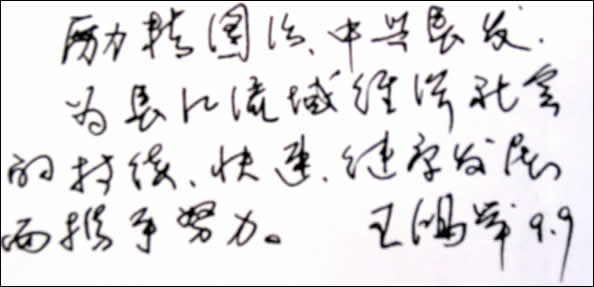 励精图治、中兴长发.
为长江流域经济社会
的持续、快速、健康发展
而携手努力。 王鸿举 9.9